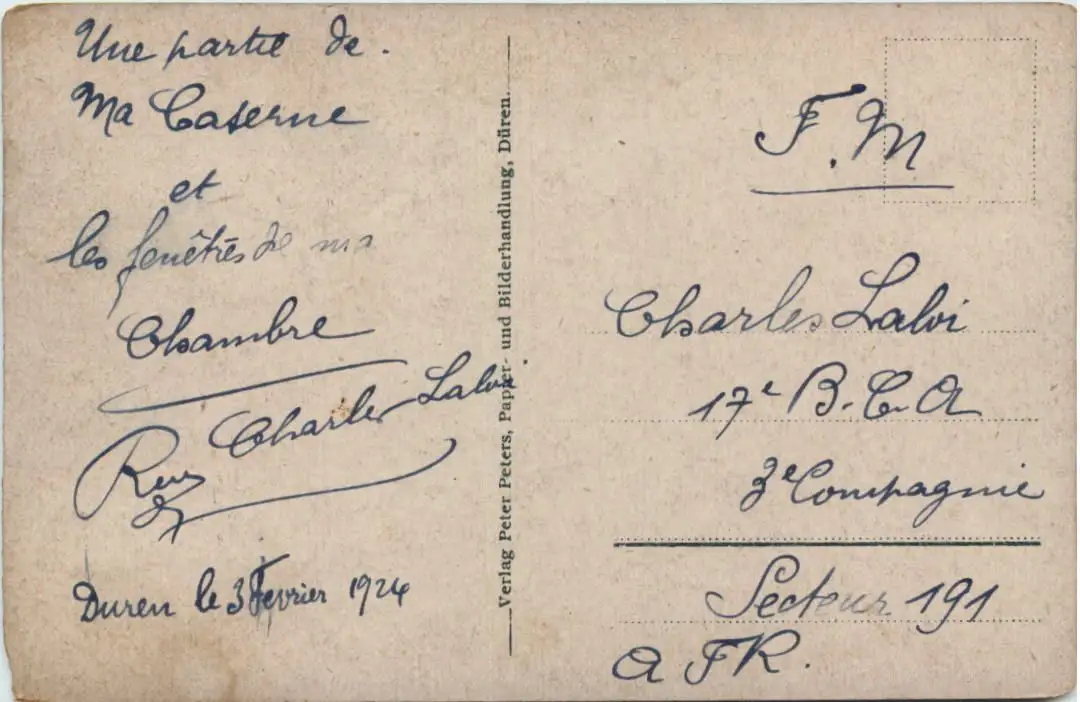 Une partie de.
Ma Caserne
et
les fenêtres de ma
Chambre
Charles Lalvi
Duren le 3 Fevrier 1924
Verlag Peter Peters, Papier- und Bilderhandlung, Düren.
F.M
Charles Lalvi
17e B.C.A
3e Compagnie
Secteur 191
A FR.